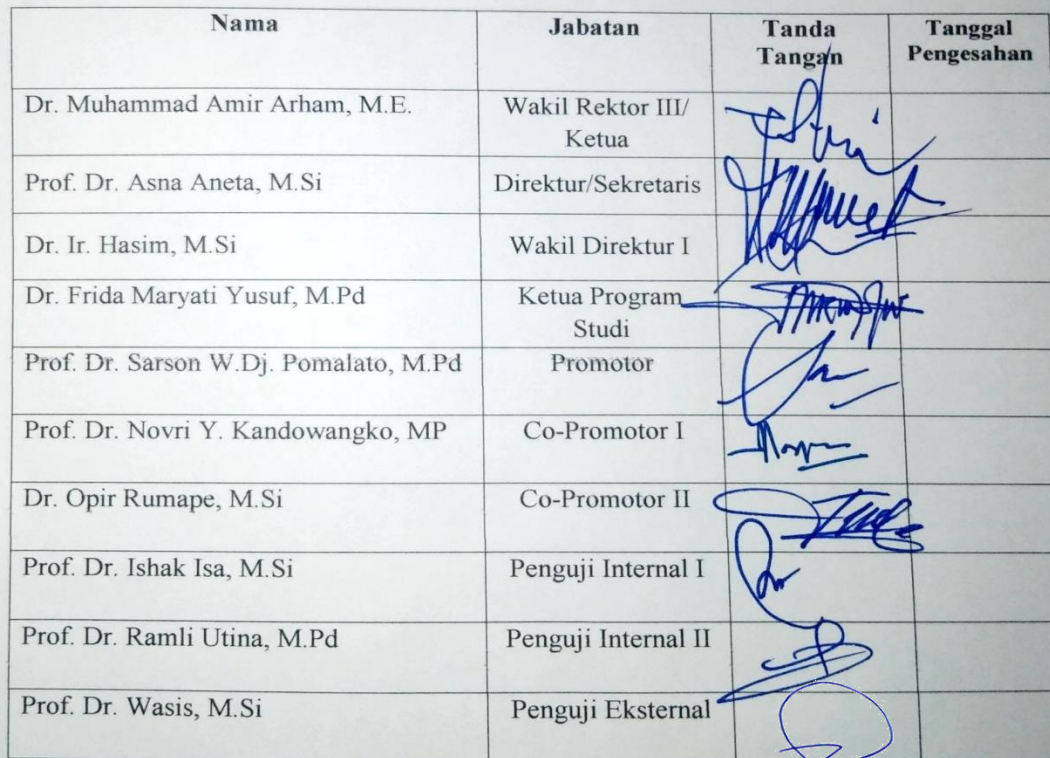 Nama Jabatan Tanda Tanggal
Tangan Pengesahan
Dr. Muhammad Amir Arham, M.E. Wakil Rektor III/
Ketua
Prof. Dr. Asna Aneta, M.Si Direktur/Sekretaris
Dr. Ir. Hasim, M.Si Wakil Direktur I
Dr. Frida Maryati Yusuf, M.Pd Ketua Program
Studi
Prof. Dr. Sarson W.Dj. Pomalato, M.Pd Promotor
Prof. Dr. Novri Y. Kandowangko, MP Co-Promotor I
Dr. Opir Rumape, M.Si Co-Promotor II
Prof. Dr. Ishak Isa, M.Si Penguji Internal I
Prof. Dr. Ramli Utina, M.Pd Penguji Internal II
Prof. Dr. Wasis, M.Si Penguji Eksternal